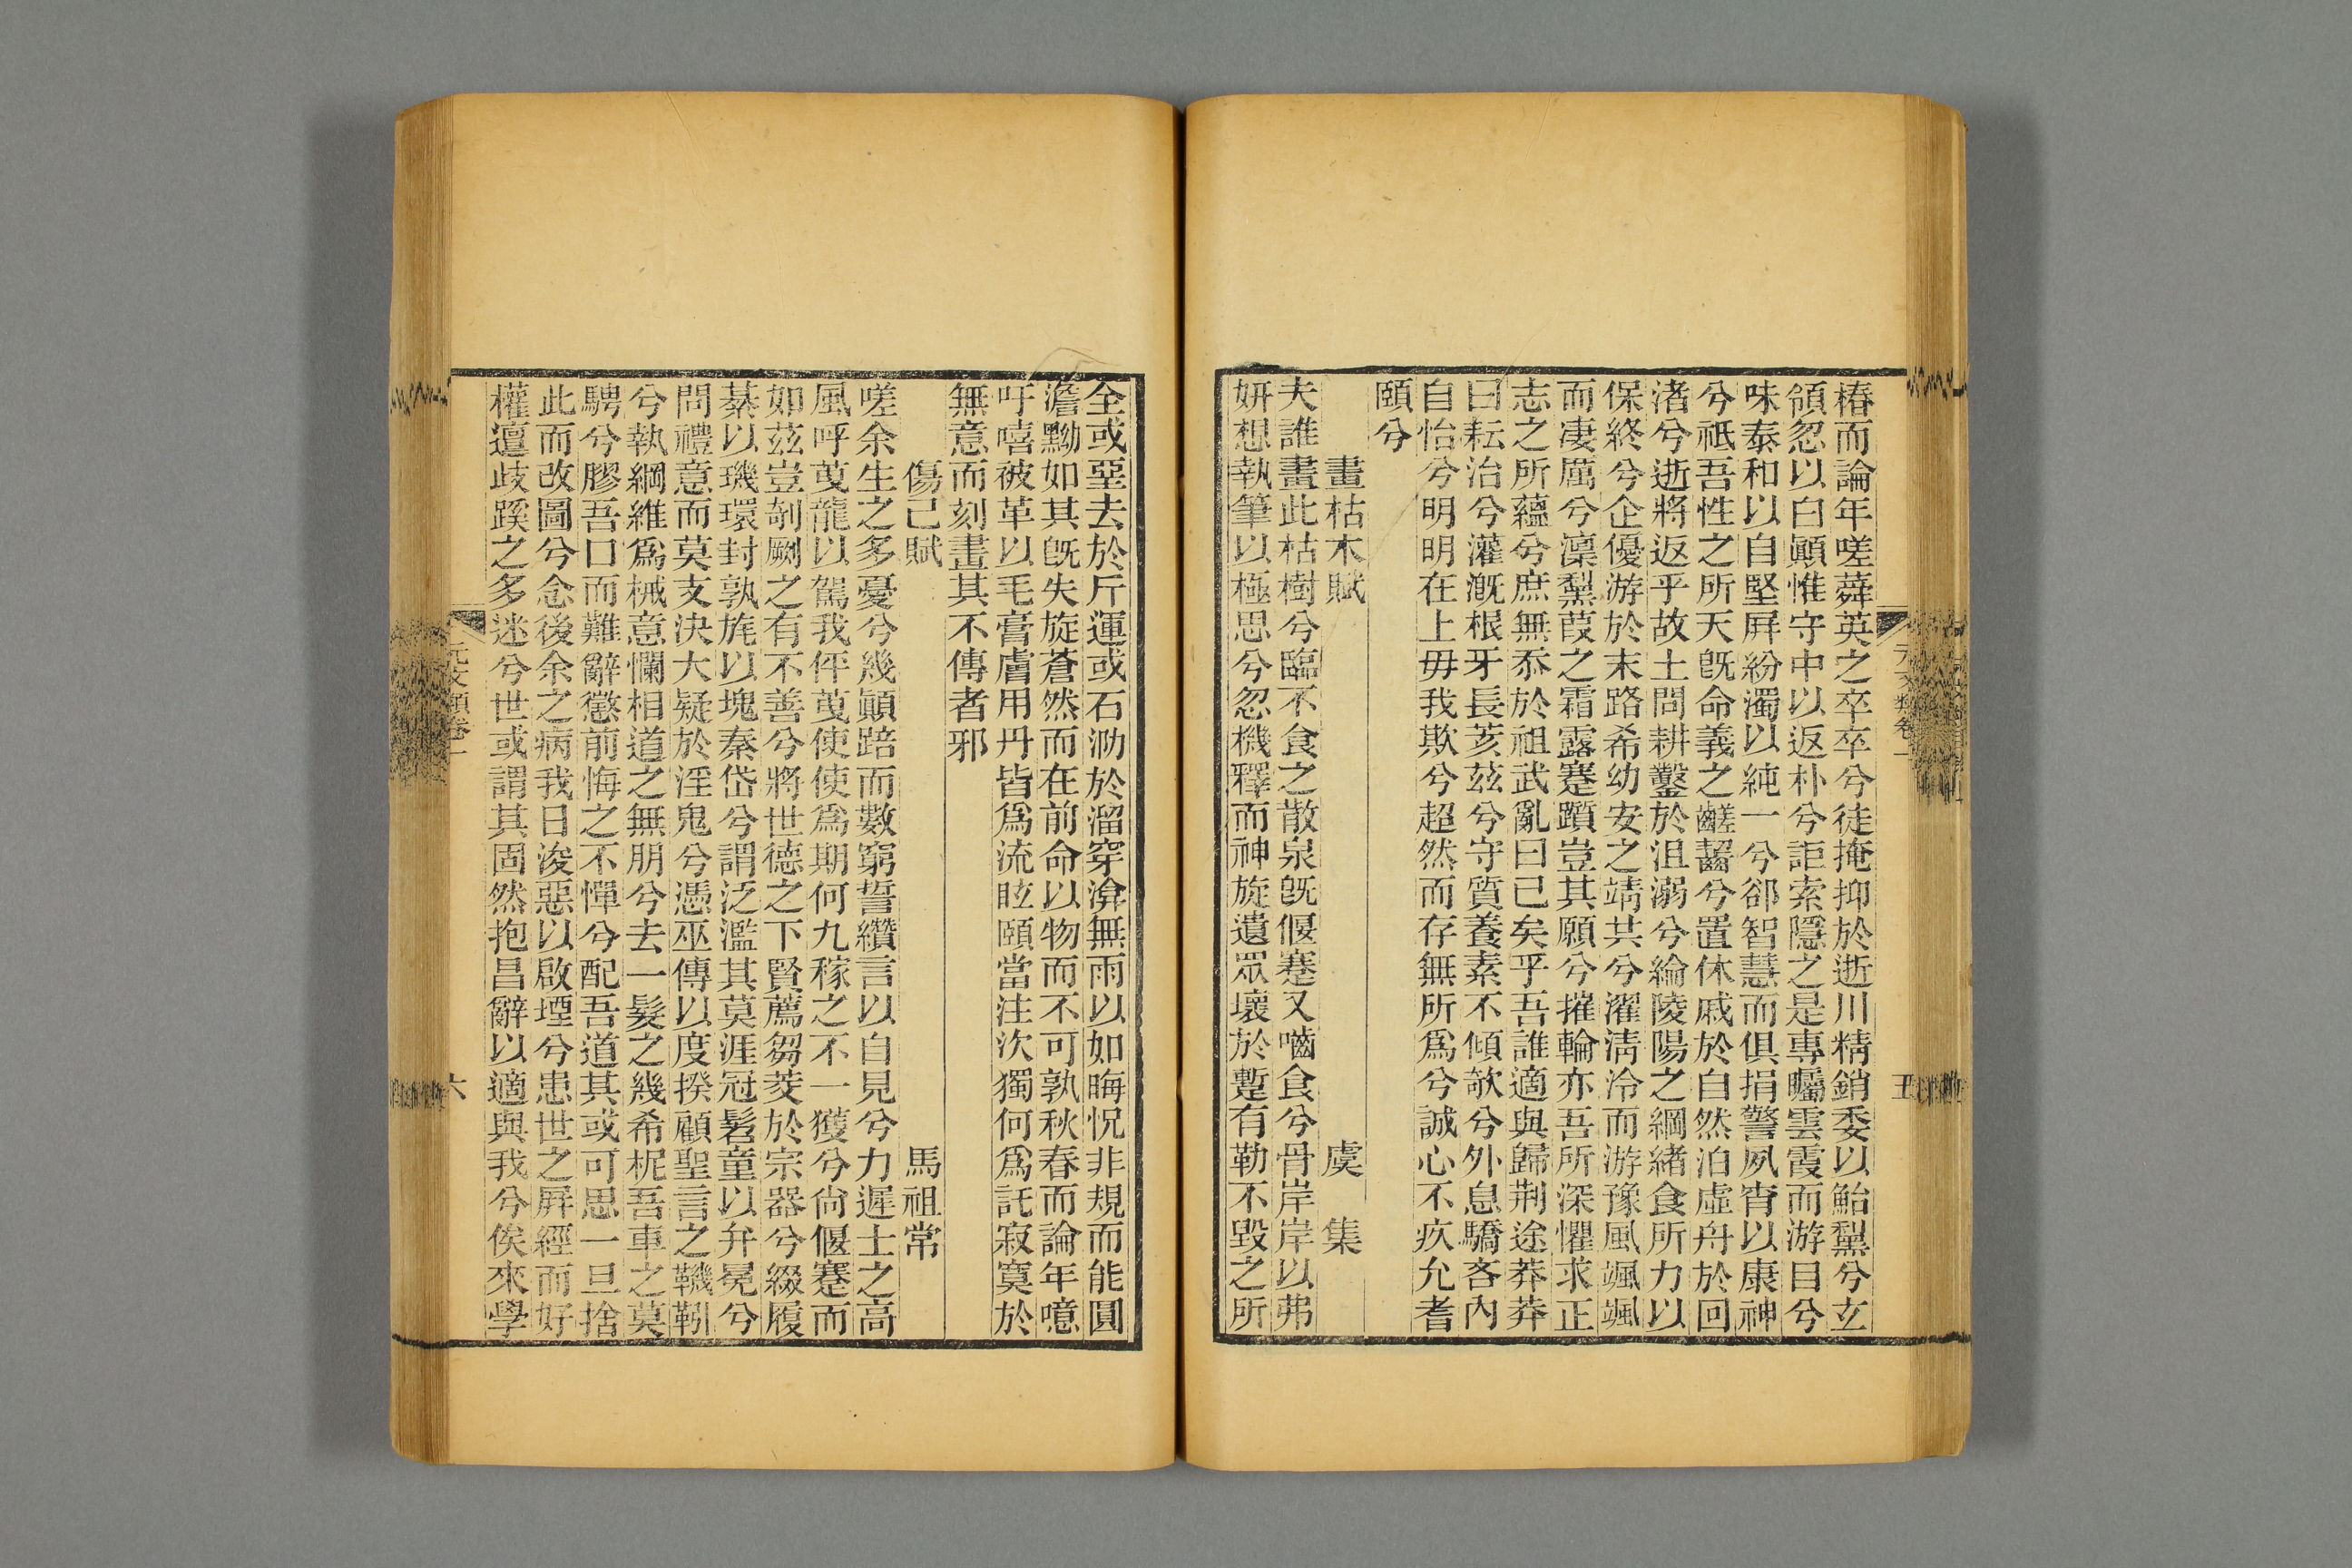 椿而論年嗟蕣英之卒卒兮徒掩抑於逝川精銷委以鮐黧兮玄
領忽以白顚惟守中以返朴兮詎索隱之是專矚雲霞而游目兮
味泰和以自堅屏紛濁以純一兮郤智慧而俱捐警夙宵以康神
兮祇吾性之所天旣命義之齹齰兮置休戚於自然泊虛舟於回
渚兮逝將返乎故土問耕鑿於沮溺兮綸陵陽之綱緖食所力以
保終兮企優游於末路希幼安之靖共兮濯淸泠而游豫風颯颯
而凄厲兮凜犁葭之霜露蹇躓豈其願兮摧輪亦吾所深懼求正
志之所蘊兮庶無忝於祖武亂曰已矣乎吾誰適與歸荆途莽莽
曰耘治兮灌漑根牙長荄茲兮守質養素不傾欹兮外息驕吝內
自怡兮明明在上毋我欺兮超然而存無所爲兮誠心不疚允耆
頤兮
畫枯木賦 虞集
夫誰畫此枯樹兮臨不食之散泉旣偃蹇又嚙食兮骨岸岸以弗
妍想執筆以極思兮忽機釋而神旋遺眾壞於蹔有勒不毀之所
元文類卷一
五
全或堊去於斤運或石泐於溜穿滄無雨以如晦怳非規而能圓
澹黝如其旣失旋蒼然而在前命以物而不可孰秋春而論年噫
吁嘻被革以毛膏膚用丹皆爲流眩頤當注次獨何爲託寂寞於
無意而刻畫其不傳者邪
傷己賦 馬祖常
嗟余生之多憂兮幾顚踣而數窮誓纘言以自見兮力遲士之高
風呼蔓龍以駕我伻蔓使使爲期何九稼之不一獲兮尙偃蹇而
如茲豈剞劂之有不善兮將世德之下賢薦芻茭於宗器兮綴履
綦以璣環封孰旄以塊秦岱兮謂泛濫其莫涯冠髫童以弁冕兮
問禮意而莫支決大疑於淫鬼兮憑巫傳以度揆顧聖言之鞿靷
兮執綱維爲械意憪相道之無朋兮去一髮之幾希柅吾車之莫
騁兮膠吾口而難辭懲前悔之不憚兮配吾道其或可思一旦捨
此而改圖兮念後余之病我日浚惡以啟堙兮患世之屛經而好
權邅歧蹊之多迷兮世或謂其固然抱昌辭以適與我兮俟來學
元文類卷一
六